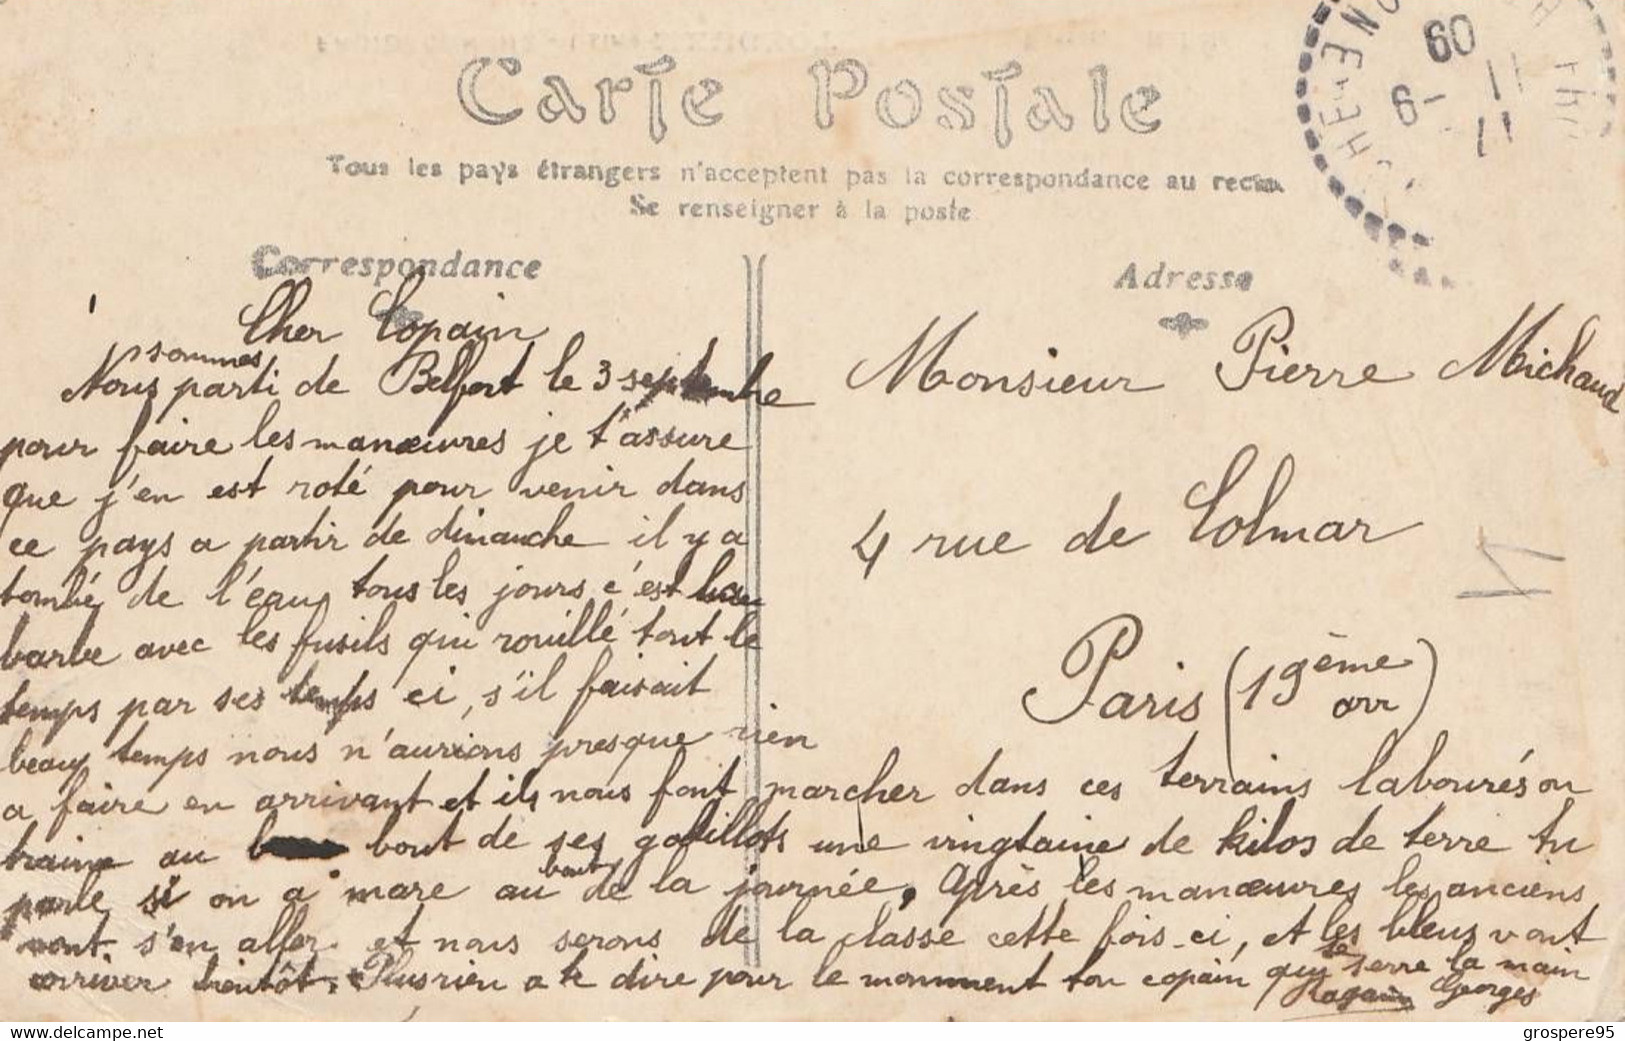 Carte Postale
Tous les pays étrangers n'acceptent pas la correspondance au recto
Se renseigner à la poste
60
6- 11
11
Correspondance
Adresse
Cher Copain
Nous sommes parti de Belfort le 3 septembre
pour faire les manœuvres je t'assure
que j'en est roté pour venir dans
ce pays a partir de dimanche il y a
tombé de l'eau tous les jours c'est la
barbe avec les fusils qui rouillé tout le
temps par ses temps ci, s'il faisait
beau temps nous n'aurions presque rien
a faire en arrivant et ils nous font marcher dans ces terrains labourés on
traine au bout de ses godillots une vingtaine de kilos de terre tu
parle si on a mare au bout de la journée, Après les manœuvres les anciens
vont s'en aller et nous serons de la classe cette fois-ci, et les bleus vont
arriver bientôt. Plus rien a te dire pour le monument ton copain qui te serre la main
Georges
Monsieur Pierre Michaud
4 rue de Colmar
Paris (19ème arr)
https://www.delcampe.net
grospere95